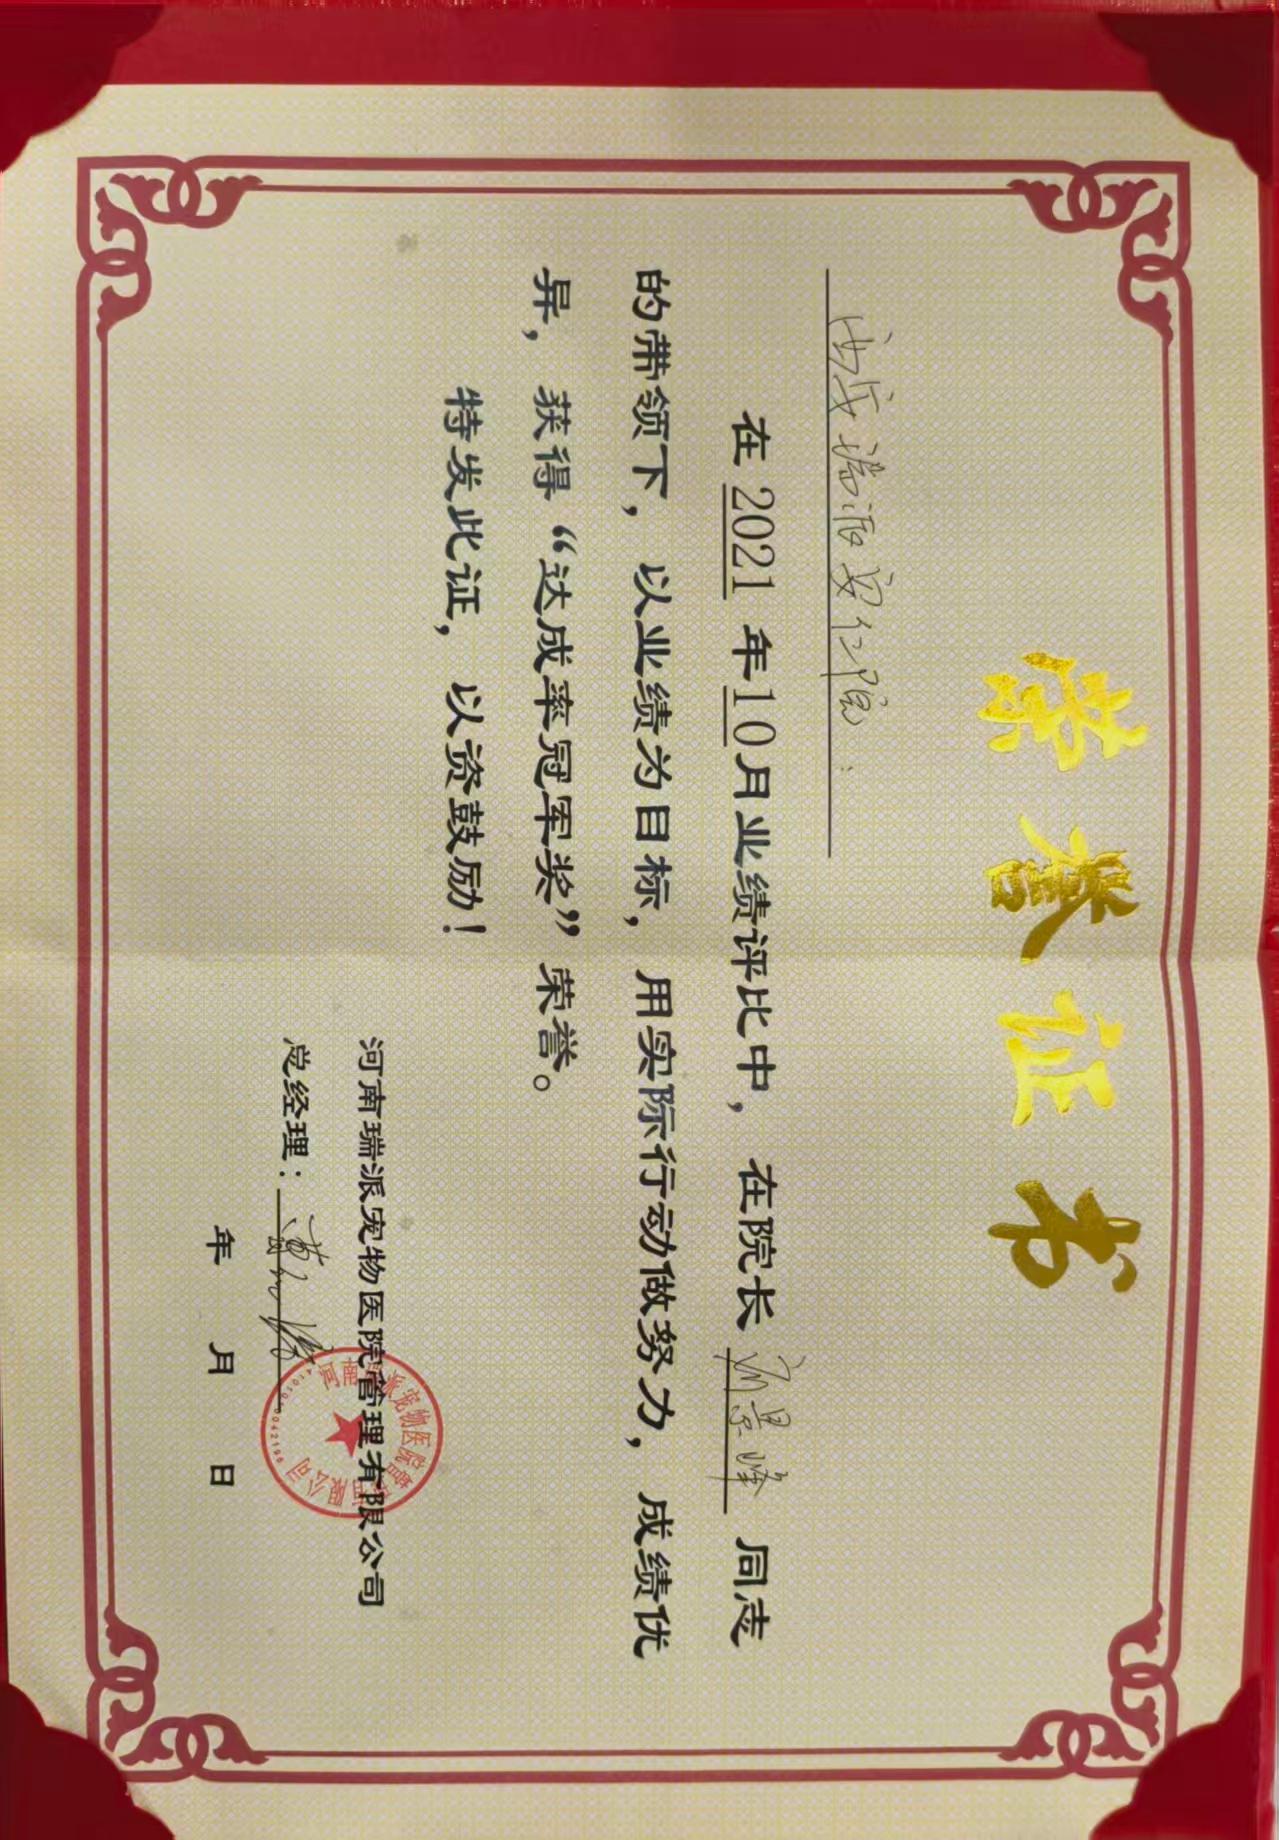 荣誉证书
瑞派安仁院:
在2021年10月业绩评比中，在院长 景峰 同志
的带领下，以业绩为目标，用实际行动做努力，成绩优
异，获得“达成率冠军奖”荣誉。
特发此证，以资鼓励！
河南瑞派宠物医院管理有限公司
总经理：
年 月 日